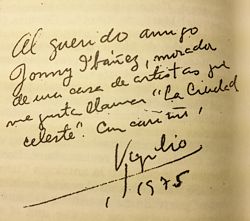 Al querido amigo
Jonny Ibáñez, morador
de una casa de artistas que
me gusta llamar "La Ciudad
celeste". Con cariño,
Virgilio
1975